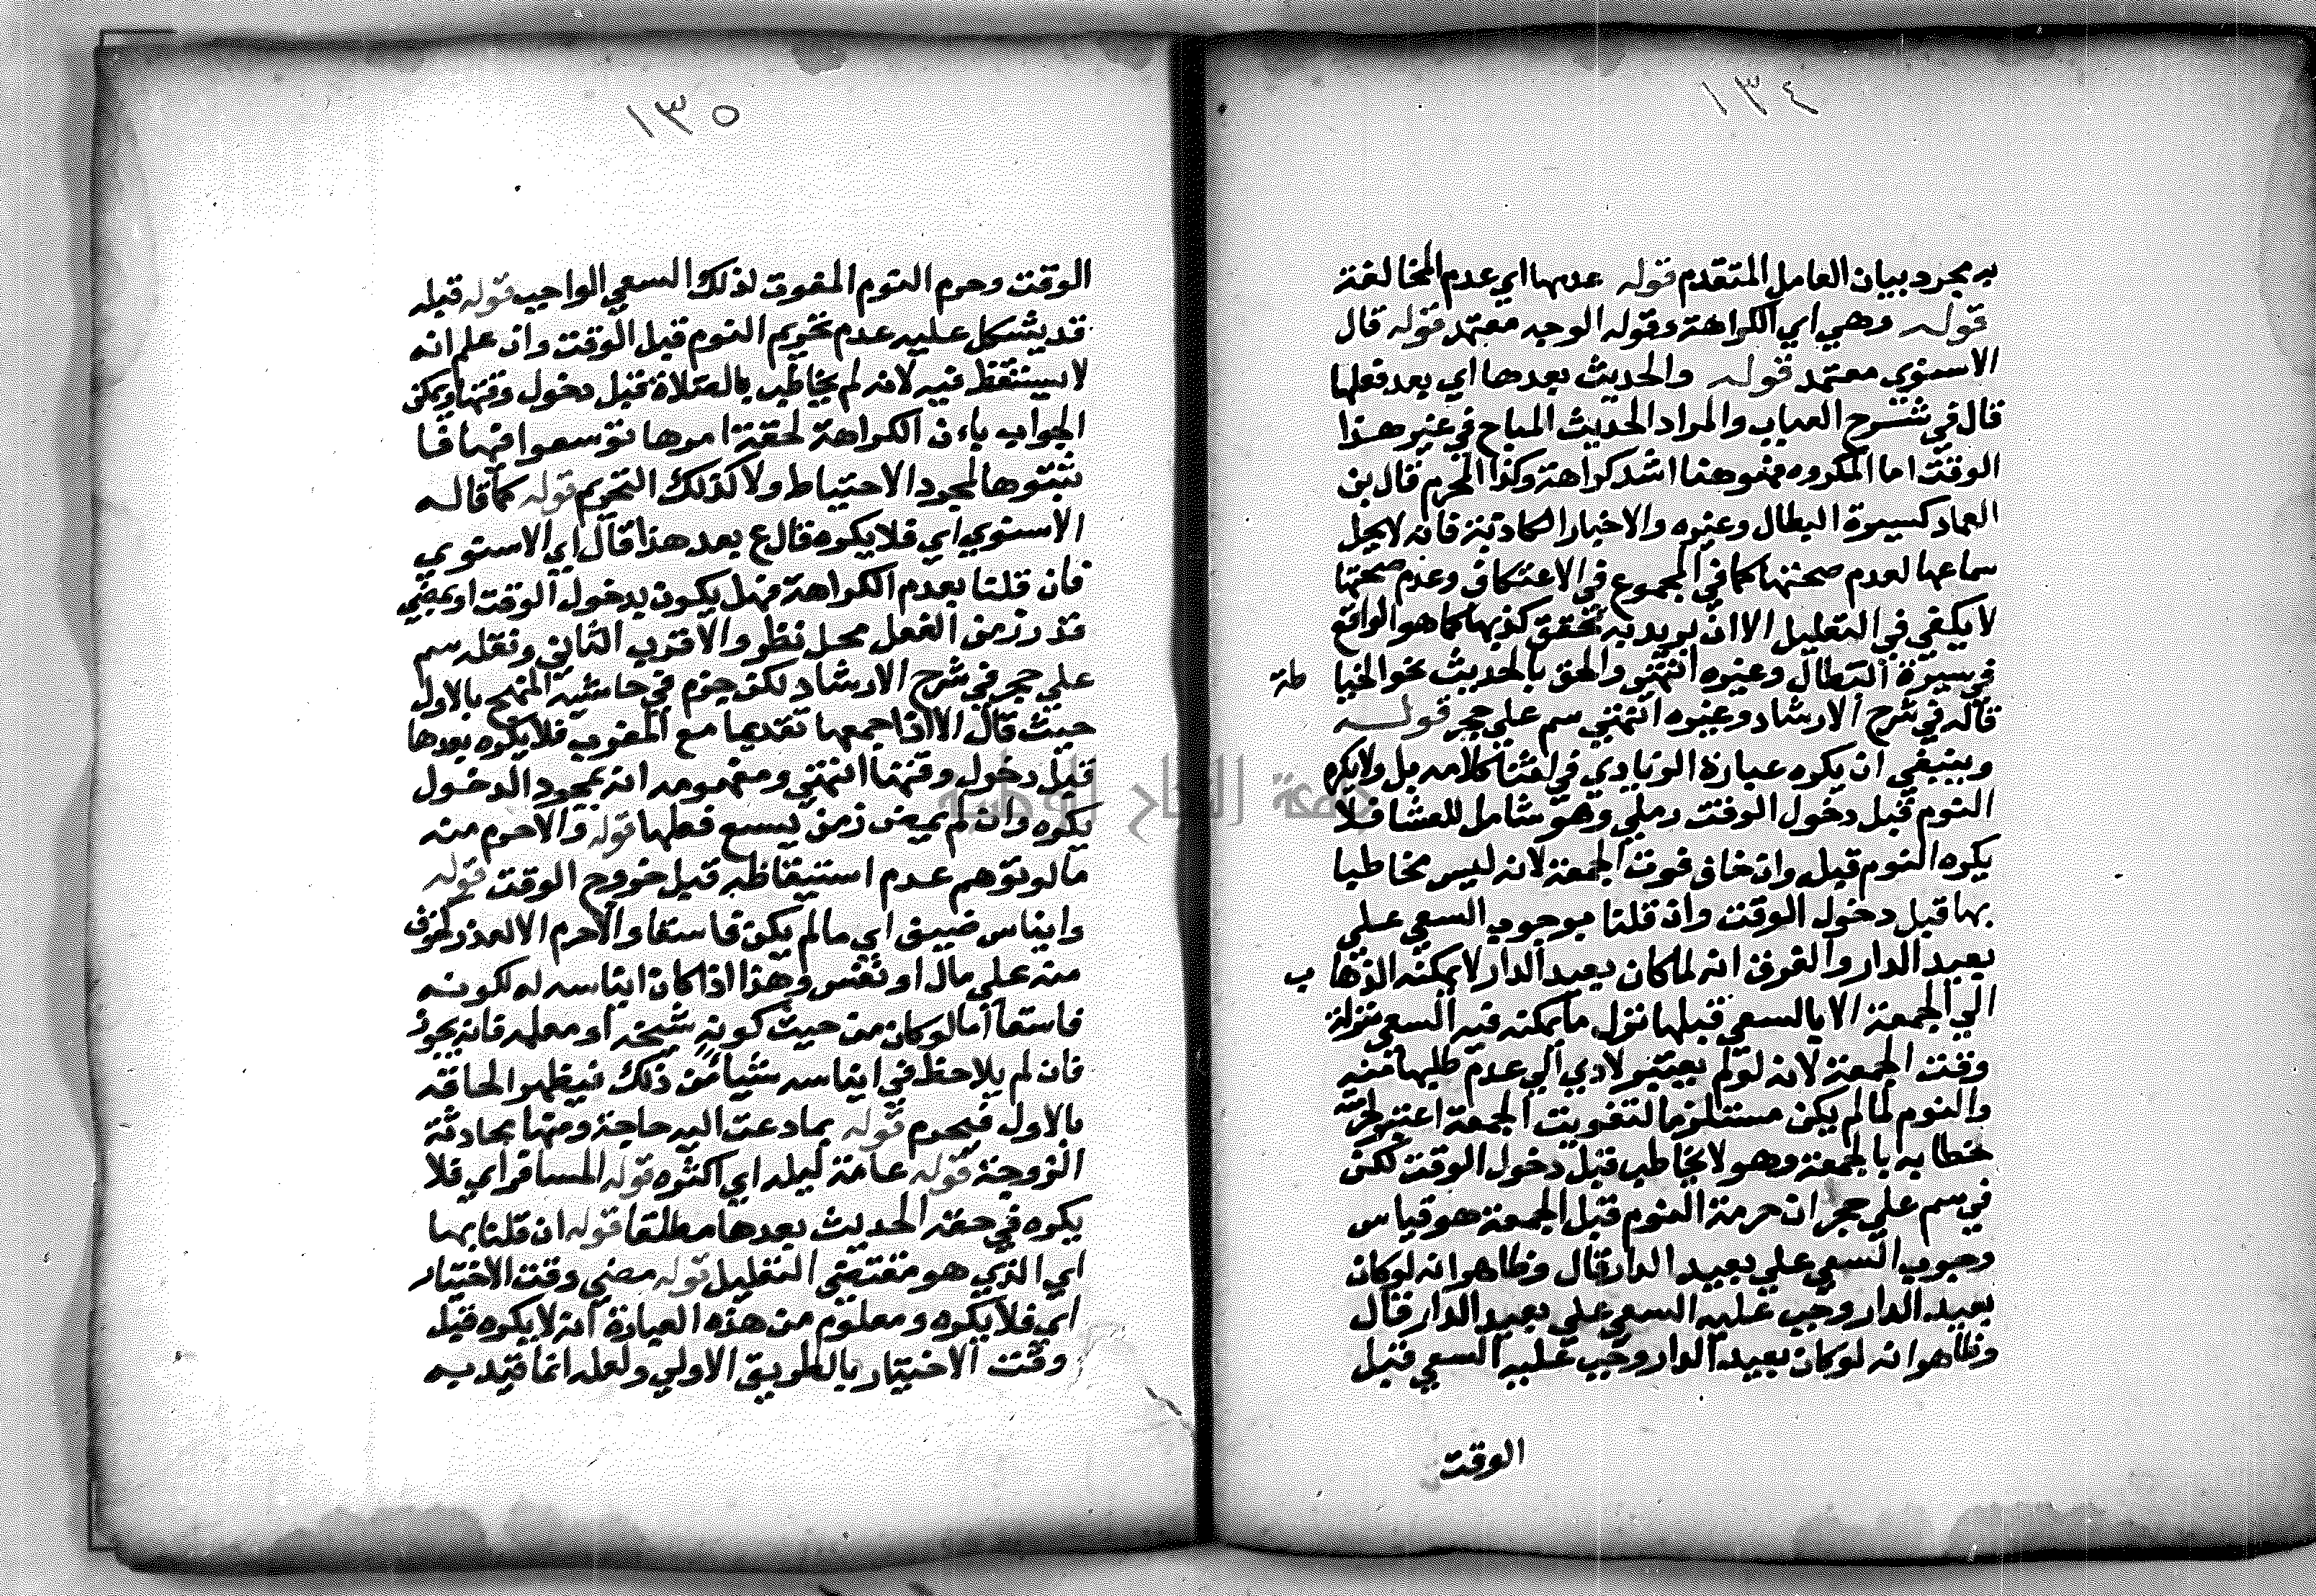 ١٣٤
به مجرد بيان العامل المتقدم قوله عدمها اي عدم المخالفة
قوله وهي اي الكراهة وقوله الوجه معتمد قوله قال
الاسنوي معتمد قوله والحديث بعدها اي بعد فعلها
قال في شرح العباب والمراد الحديث المباح في غير هذا
الوقت اما المكروه فهو هنا اشد كراهة وكذا المحرم قال بن
العماد كسيرة البطال وغيره والاخبار الكاذبة فانه لا يحل
سماعها لعدم صحتها كما في المجموع في الاعتكاف وعدم صحتها
لا يكفي في التعليل الا ان يريد به تحقق كذبها كما هو الواقع
في سيرة البطال وغيره انتهى والحق بالحديث نحو الخيا طة
قاله في شرح الارشاد وغيره انتهى سم علي حجر قوله
وينبغي ان يكره عبارة الزيادي في اثنا كلامه بل ولا يكره
النوم قبل دخول الوقت رملي وهو شامل للعشا فلا
يكره النوم قبله وان خاف فوت الجمعة لانه ليس مخاطبا
بها قبل دخول الوقت وان قلنا بوجوب السعي علي
بعيد الدار والفرق انه لما كان بعيد الدار لا يمكنه الذها ب
الي الجمعة الا بالسعي قبلها نزل ما يمكنه فيه السعي منزلة
وقت الجمعة لانه لو لم يعتبر لادي الي عدم طلبها منه
والنوم لما لم يكن مستلزما لتفويت الجمعة اعتبر لحرمته
خطابه بالجمعة وهو لا يخاطب قبل دخول الوقت لكن
في سم علي حجر ان حرمة النوم قبل الجمعة هو قياس
وجوب السعي علي بعيد الدار قال وظاهره انه لو كان
بعيد الدار وجب عليه السعي علي بعيد الدار قال
وظاهره انه لو كان بعيد الدار وجب عليه السعي قبل
الوقت
١٣٥
الوقت وحرم النوم المفوت لذلك السعي الواجب قوله قبله
قد يشكل عليه عدم تحريم النوم قبل الوقت وان علم انه
لا يستيقظ فيه لانه لم يخاطب بالصلاة قبل دخول وقتها ويمكن
الجواب باءن الكراهة لخفة امرها توسعوا فيها فا
ثبتوها لمجرد الاحتياط ولا كذلك التحريم قوله كما قاله
الاسنوي اي فلا يكره قال ع بعد هذا قال اي الاسنوي
فان قلنا بعدم الكراهة فهل يكون بدخول الوقت او بمضي
قدر زمن الفعل محل نظر والاقرب الثاني ونقله سم
علي حجر في شرح الارشاد لكن جزم في حاشية المنهج بالاول
حيث قال الا اذا جمعها تقديما مع المغرب فلا يكره بعدها
قبل دخول وقتها انتهى ومفهومه انه بمجرد الدخول
يكره وان لم يمض زمن يسع فعلها قوله والا حرم منه
ما لو توهم عدم استيقاظه قبل خروج الوقت قوله
وايناس ضيف اي ما لم يكن فاسقا والا حرم الا لعذر لخوف
منه علي مال او نفس وهذا اذا كان ايناسه له لكونه
فاسقا اما لو كان من حيث كونه شيخه او معلمه فانه يجوز
فان لم يلاحظ في ايناسه شيئا من ذلك فيظهر الحاقه
بالاول فيحرم قوله بما دعت اليه حاجة ومنها محادثة
الزوجة قوله عامة ليله اي اكثره قوله المسافر اي فلا
يكره في حقه الحديث بعدها مطلقا قوله ان قلنا بها
اي الذي هو مقتضى التعليل قوله مضي وقت الاختيار
اي فلا يكره ومعلوم من هذه العبارة انه لا يكره قبل
وقت الاختيار بالطريق الاولي ولعله انما قيد به